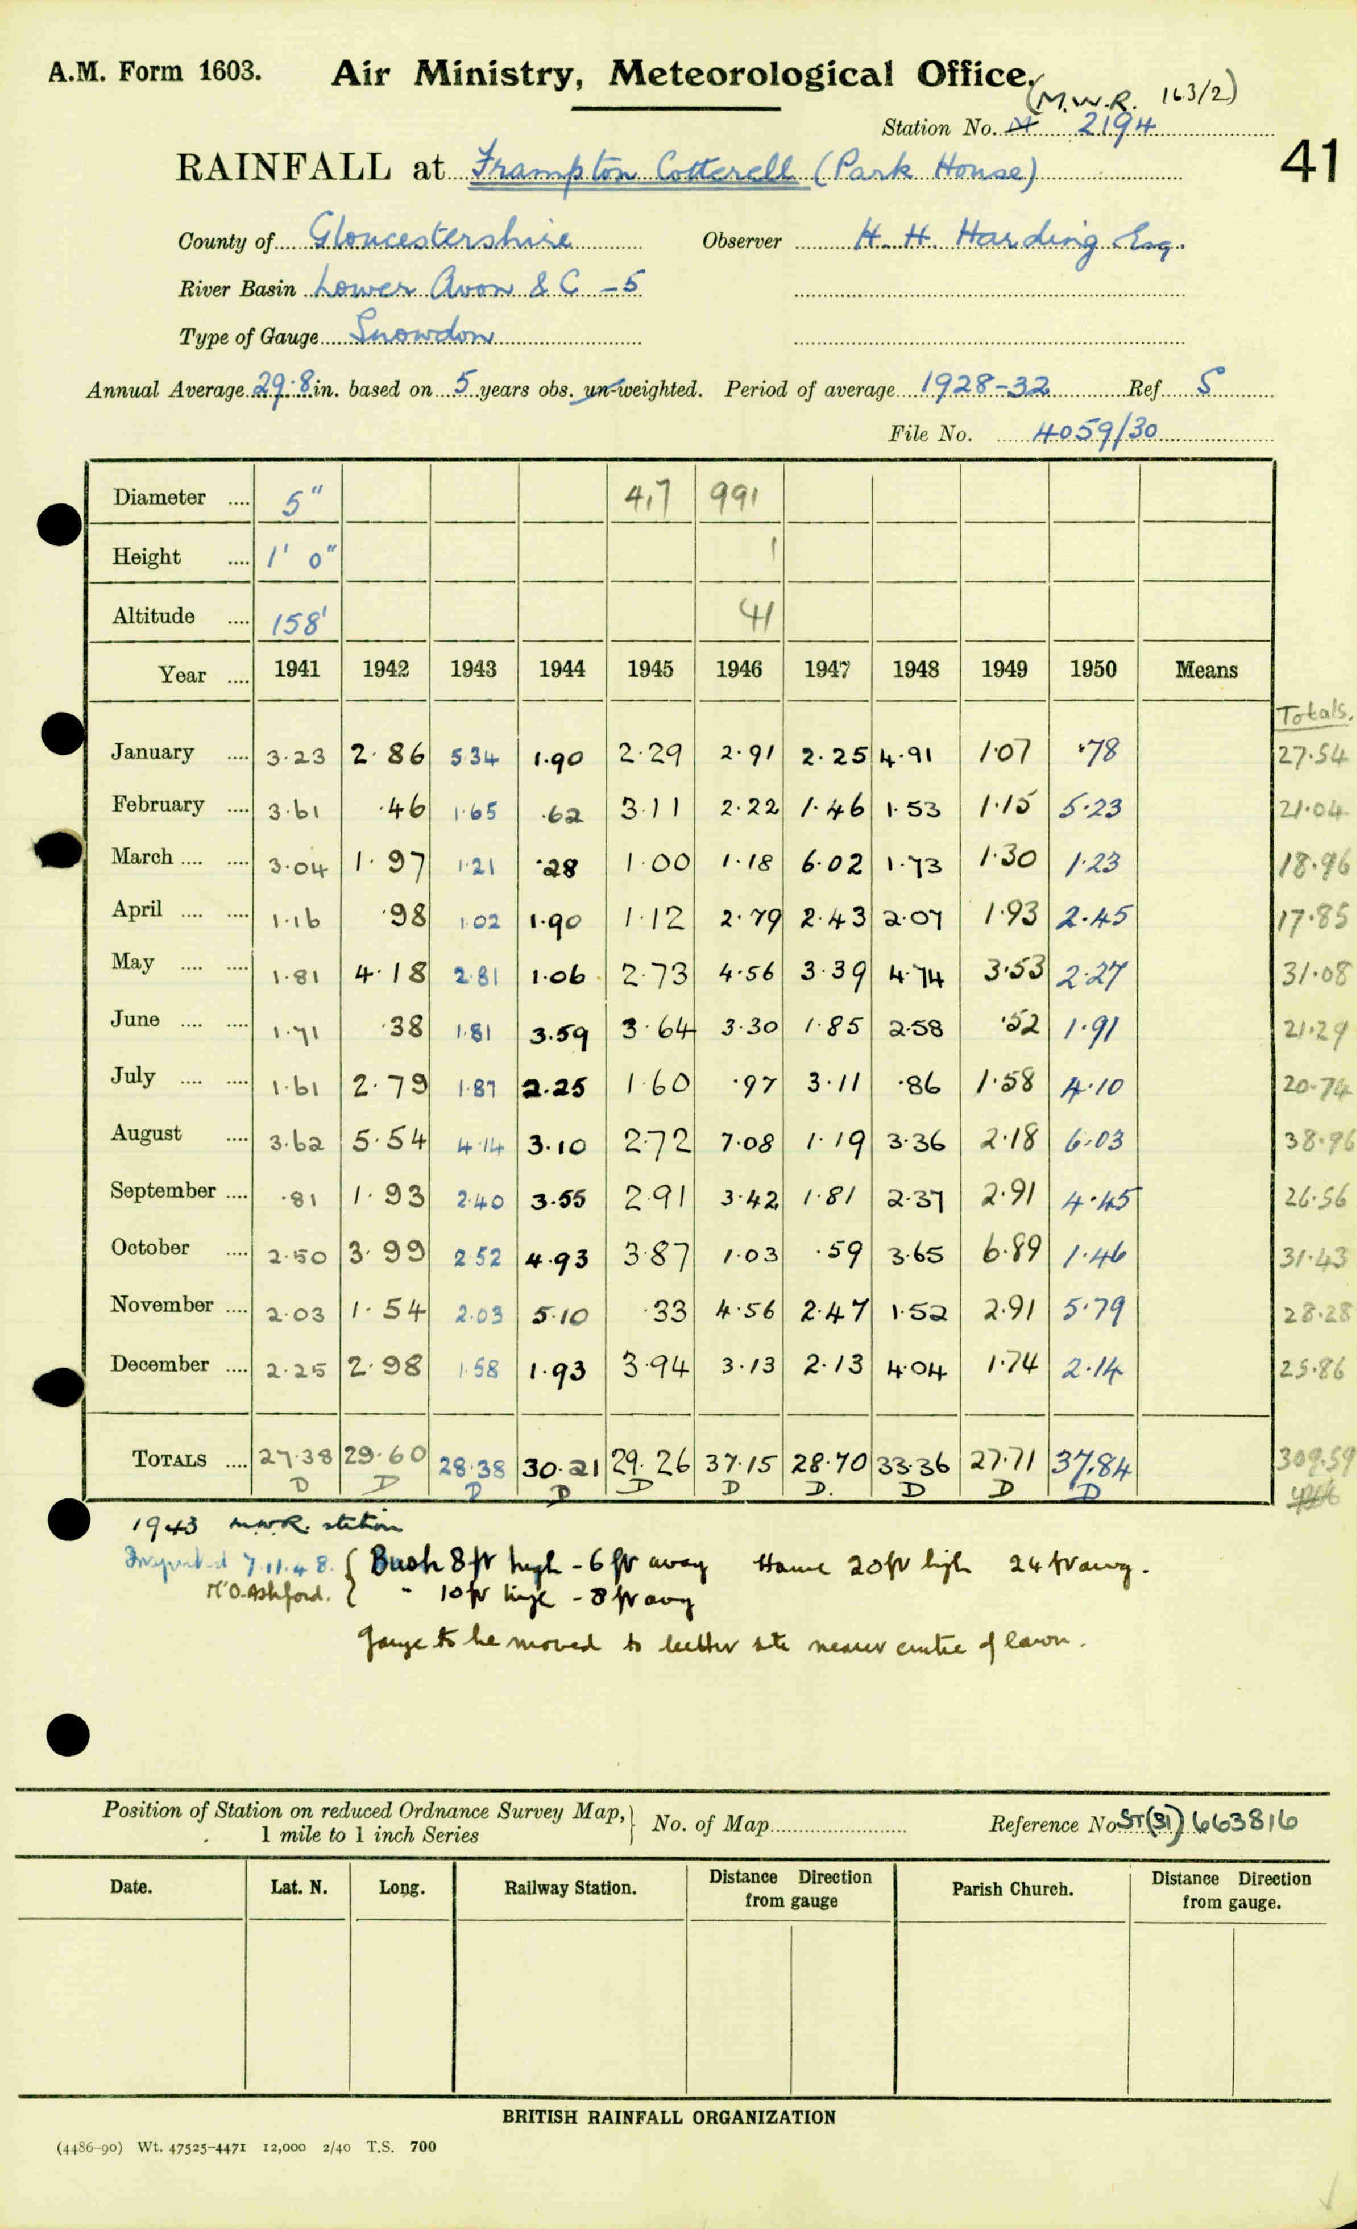 A.M. Form 1603. Air Ministry, Meteorological Office.
(M.W.R. 163/2)
Station No. M 2194
41
RAINFALL at Frampton Cotterell (Park House)
County of Gloucestershire Observer H. H. Harding Esq.
River Basin Lower Avon & C - 5
Type of Gauge Snowdon
Annual Average 29.8 in. based on 5 years obs. un-weighted. Period of average 1928-32 Ref S
File No. 4059/30
Diameter .... 5" 4,7 991
Height .... 1' 0" 1
Altitude .... 158' 41
Year .... 1941 1942 1943 1944 1945 1946 1947 1948 1949 1950 Means
Totals.
January .... 3.23 2.86 5.34 1.90 2.29 2.91 2.25 4.91 1.07 .78 27.54
February .... 3.61 .46 1.65 .62 3.11 2.22 1.46 1.53 1.15 5.23 21.04
March .... .... 3.04 1.97 1.21 .28 1.00 1.18 6.02 1.73 1.30 1.23 18.96
April .... .... 1.16 .98 1.02 1.90 1.12 2.79 2.43 2.07 1.93 2.45 17.85
May .... .... 1.81 4.18 2.81 1.06 2.73 4.56 3.39 4.74 3.53 2.27 31.08
June .... .... 1.71 .38 1.81 3.59 3.64 3.30 1.85 2.58 .52 1.91 21.29
July .... .... 1.61 2.79 1.87 2.25 1.60 .97 3.11 .86 1.58 4.10 20.74
August .... 3.62 5.54 4.14 3.10 2.72 7.08 1.19 3.36 2.18 6.03 38.96
September .... .81 1.93 2.40 3.55 2.91 3.42 1.81 2.37 2.91 4.45 26.56
October .... 2.50 3.99 2.52 4.93 3.87 1.03 .59 3.65 6.89 1.46 31.43
November .... 2.03 1.54 2.03 5.10 .33 4.56 2.47 1.52 2.91 5.79 28.28
December .... 2.25 2.98 1.58 1.93 3.94 3.13 2.13 4.04 1.74 2.14 25.86
TOTALS .... 27.38 29.60 28.38 30.21 29.26 37.15 28.70 33.36 27.71 37.84 309.59
D D D D D D D. D D D
1943 M.W.R. station
Inspected 7.11.48. { Bush 8 ft high - 6 ft away House 20 ft high 24 ft away.
K O. Ashford. { " 10 ft high - 8 ft away
Gauge to be moved to better site nearer centre of lawn.
Position of Station on reduced Ordnance Survey Map, } No. of Map Reference No ST(31) 663816
1 mile to 1 inch Series
Date. Lat. N. Long. Railway Station. Distance Direction from gauge Parish Church. Distance Direction from gauge.
BRITISH RAINFALL ORGANIZATION
(4486-90) Wt. 47525-4471 12,000 2/40 T.S. 700